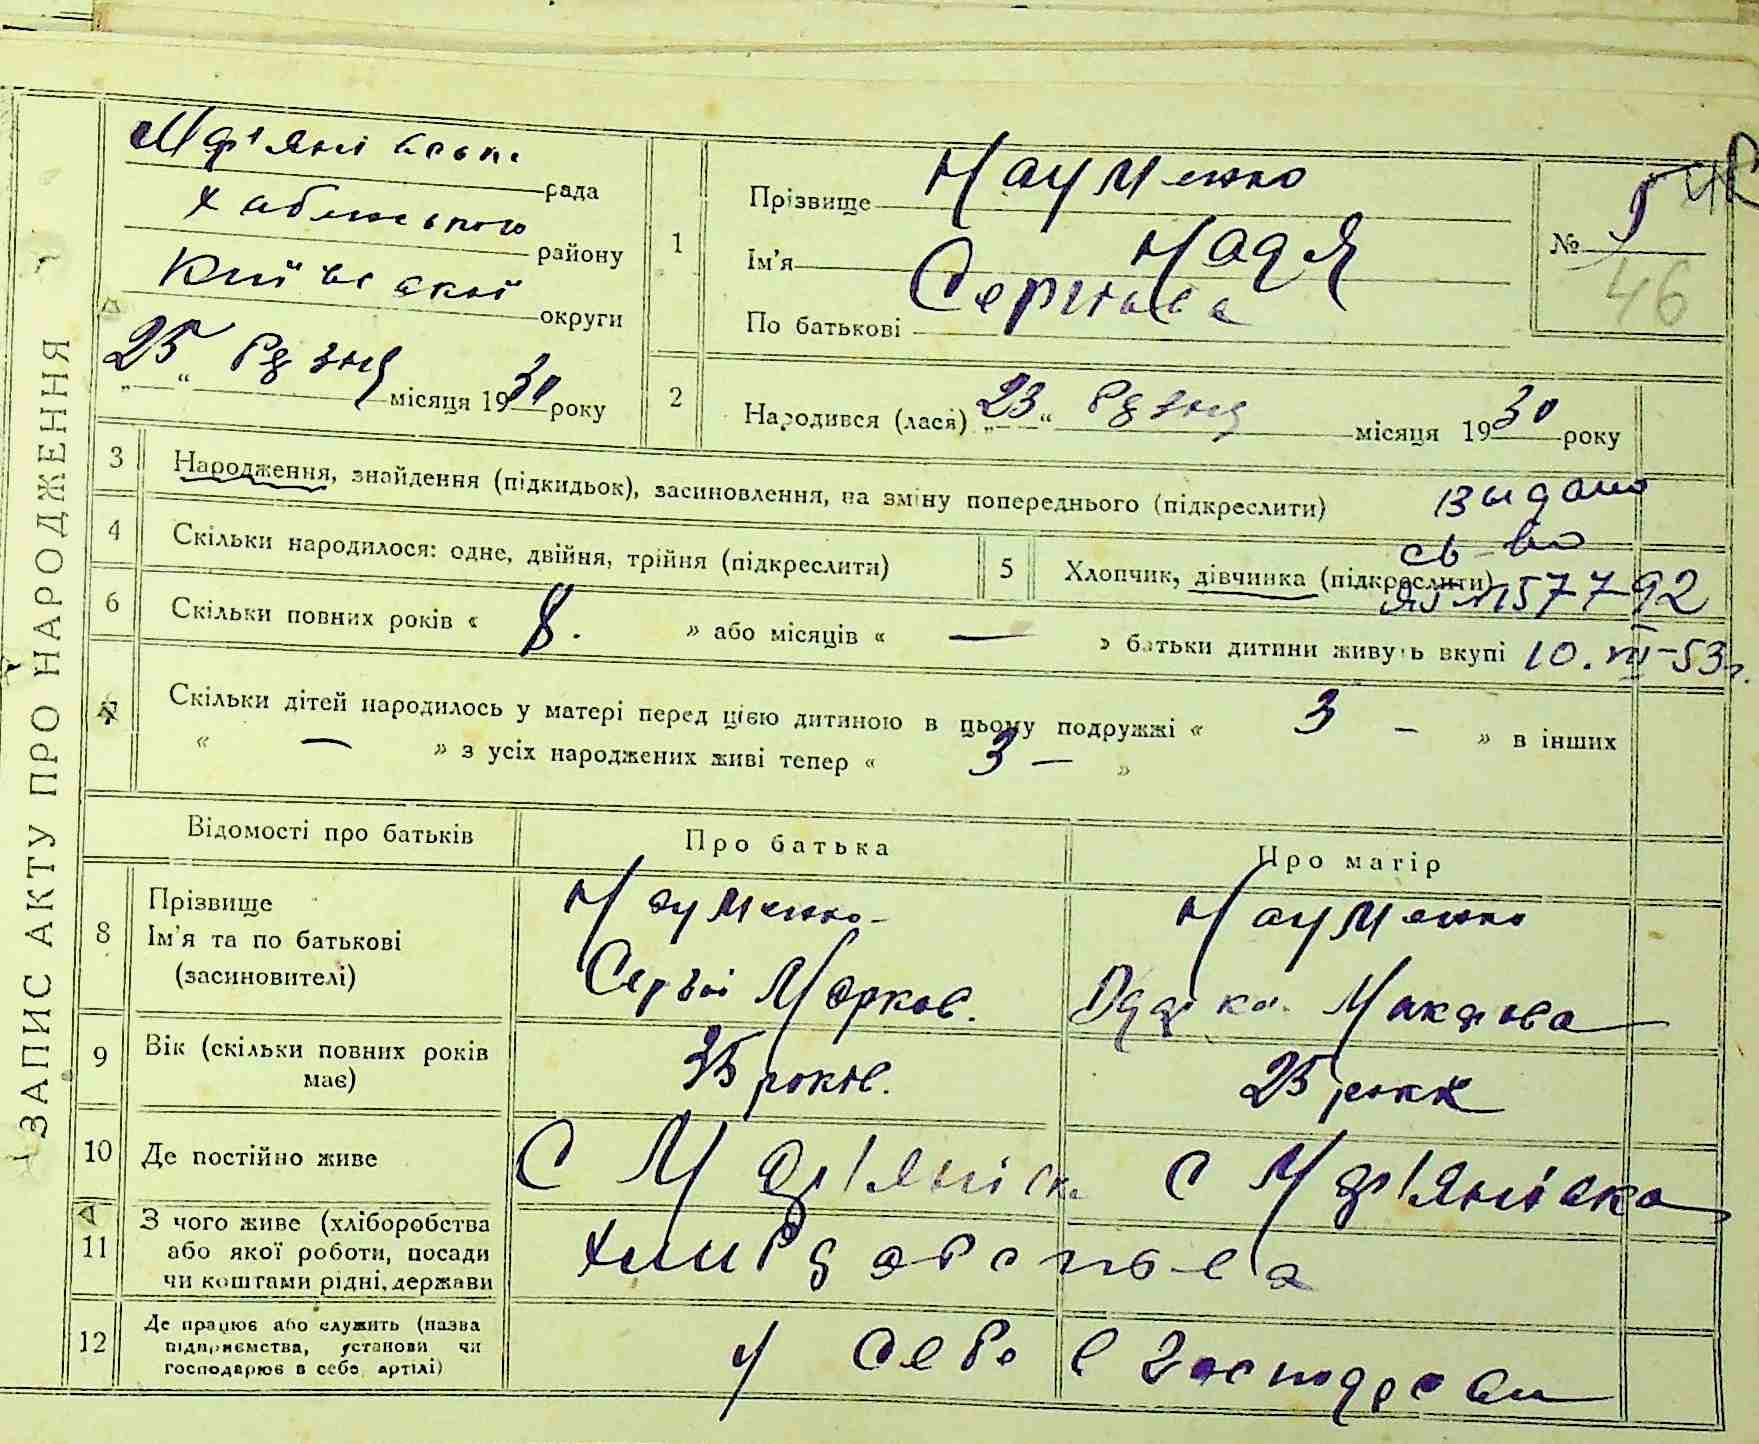 ЗАПИС АКТУ ПРО НАРОДЖЕННЯ
рада
району
округи
„25“ місяця 1930 року
1
Прізвище Науменко
Ім'я Надя
По батькові
№ 5
46
2
Народився (лася) „23“ місяця 1930 року
3 Народження, знайдення (підкидьок), засиновлення, на зміну попереднього (підкреслити)
Выдано
св-во
577792
10. VII-53г.
4 Скільки народилося: одне, двійня, трійня (підкреслити)
5 Хлопчик, дівчинка (підкреслити)
6 Скільки повних років « 8. » або місяців « — » батьки дитини живуть вкупі
7 Скільки дітей народилось у матері перед цією дитиною в цьому подружжі « 3 – » в інших
« — » з усіх народжених живі тепер « 3 – »
Відомості про батьків
Про батька
Про матір
8
Прізвище
Ім'я та по батькові
(засиновителі)
Науменко
Сергій Марков.
Науменко
9
Вік (скільки повних років
має)
35 років.
25 рокк
10
Де постійно живе
С Мар'янівка
С Мар'янівка
11
З чого живе (хліборобства
або якої роботи, посади
чи коштами рідні, держави
12
Де працює або служить (назва
підприємства, установи чи
господарює в себе, артілі)
у себе в господрстви